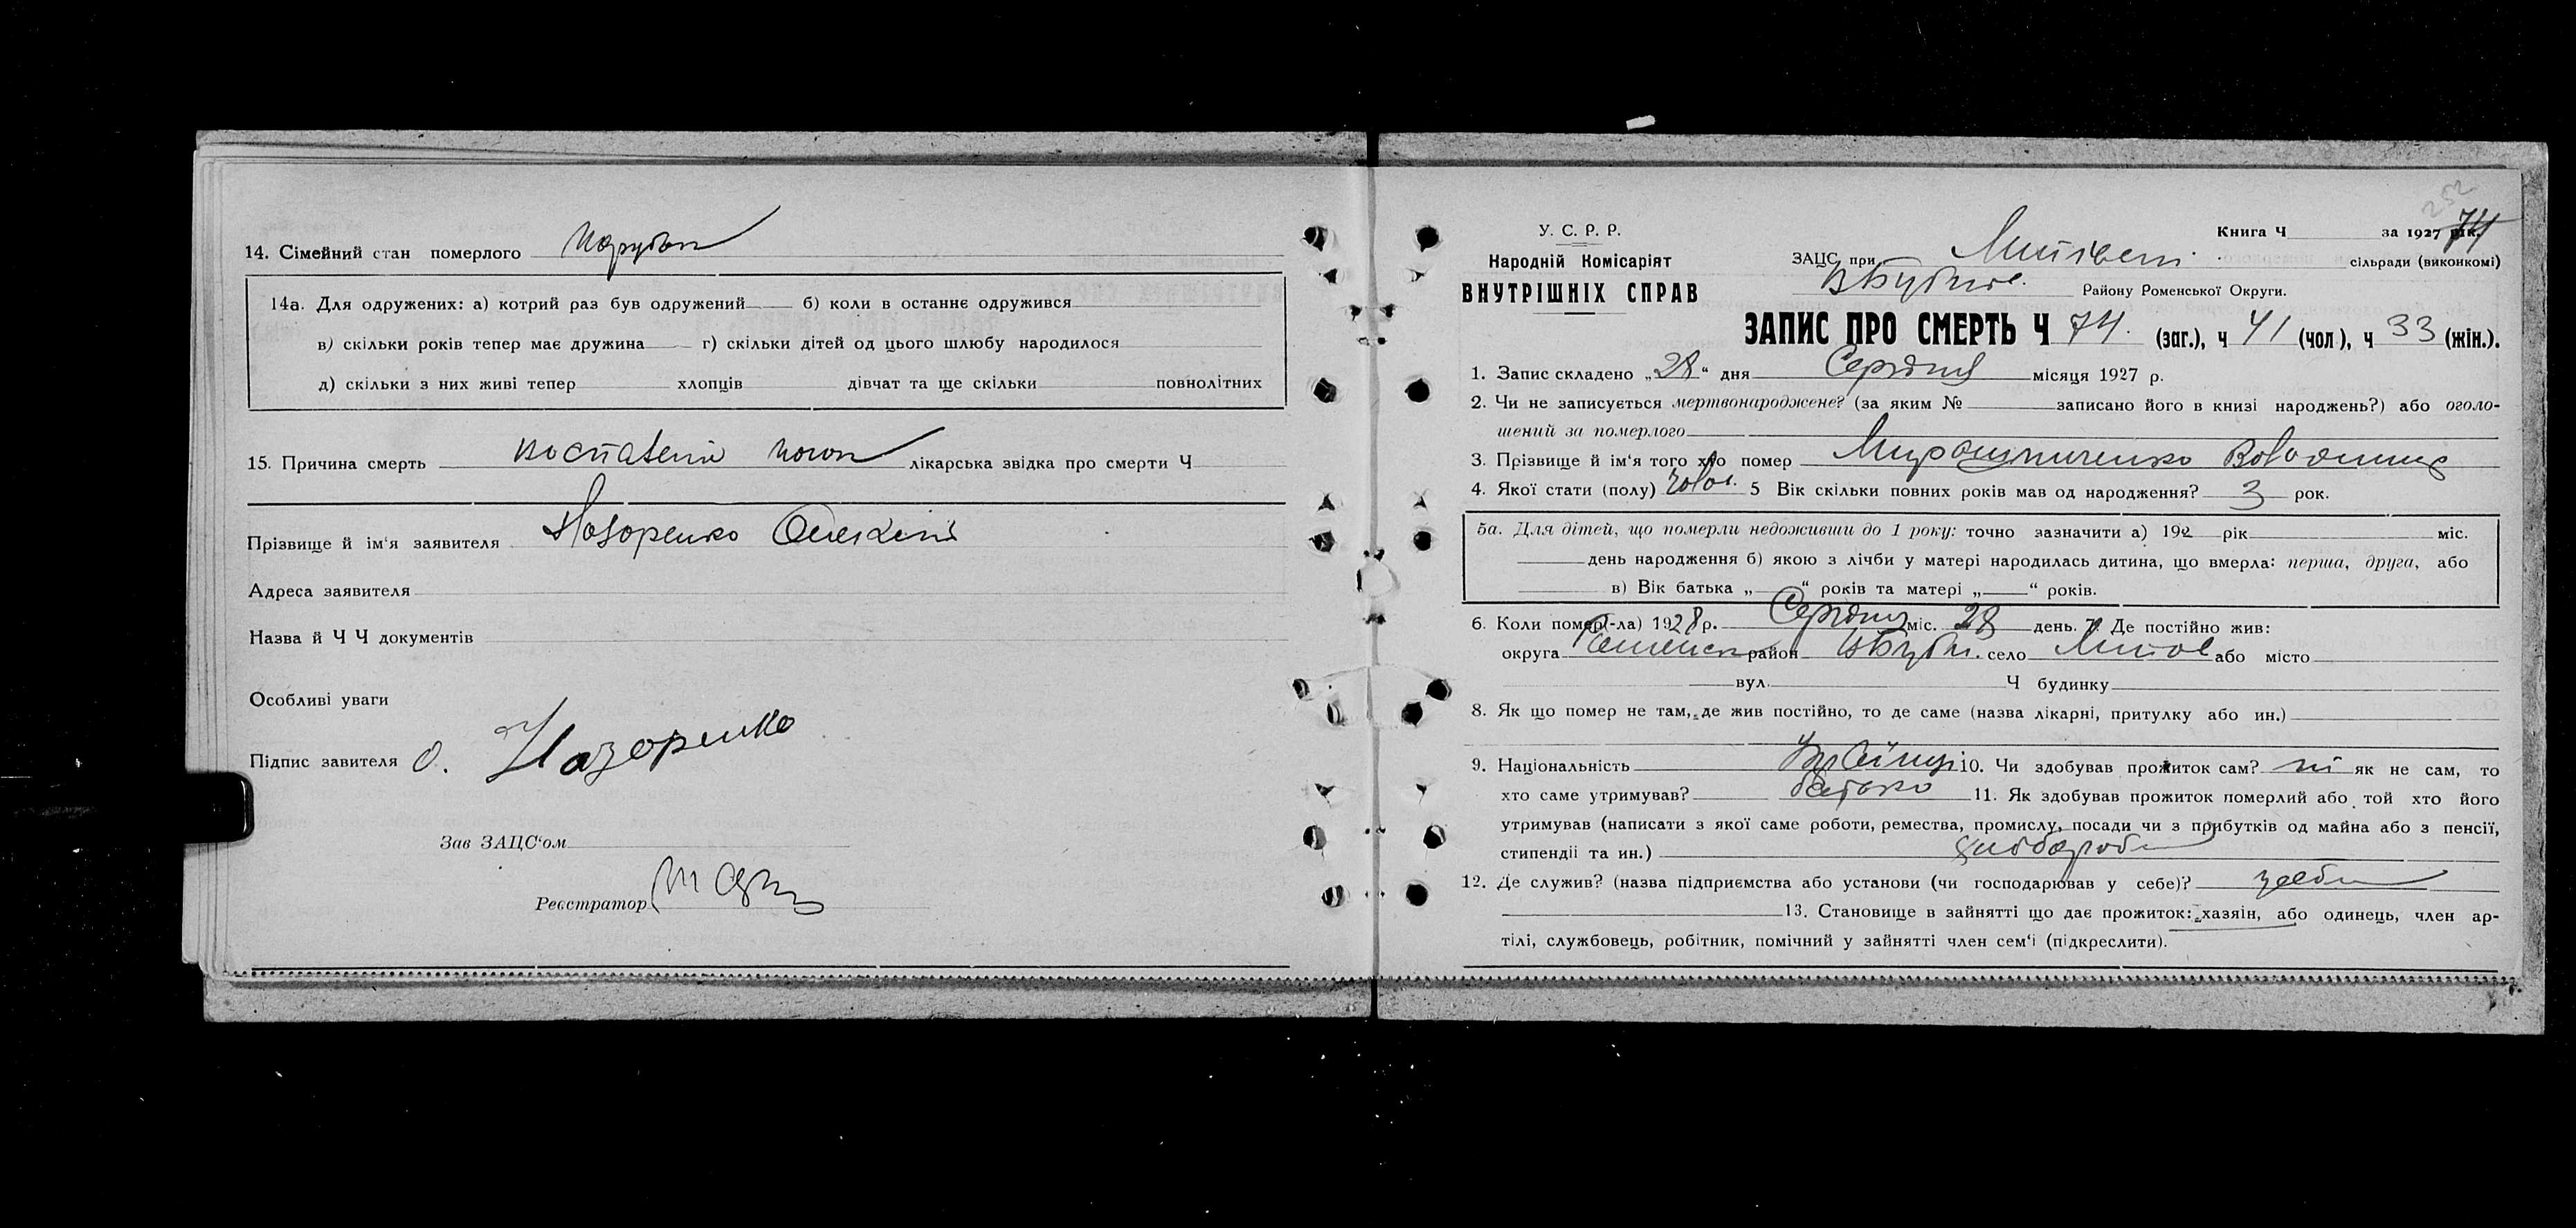 14. Сімейний стан померлого Парубок
14а. Для одружених: а) котрий раз був одружений б) коли в останнє одружився
в) скільки років тепер має дружина г) скільки дітей од цього шлюбу народилося
д) скільки з них живі тепер хлопців дівчат та ще скільки повнолітних
15. Причина смерть лікарська звідка про смерти Ч
Прізвище й ім'я заявителя Назоренко Олексій
Адреса заявителя
Назва й Ч Ч документів
Особливі уваги
Підпис завителя О. Назоренко
Зав ЗАЦС'ом
Реєстратор
252
74
У. С. Р. Р.
Народній Комісаріят
ВНУТРІШНІХ СПРАВ
Книга Ч за 1927 рік.
ЗАЦС при сільради (виконкомі)
ВБубни Району Роменської Округи.
ЗАПИС ПРО СМЕРТЬ Ч 74. (заг.), ч 41 (чол), ч 33 (жін.).
1. Запис складено „28" дня Серпня місяця 1927 р.
2. Чи не записується мертвонароджене? (за яким № записано його в книзі народжень?) або оголо-
шений за померлого
3. Прізвище й ім'я того хто помер Мирошниченко Володимир
4. Якої стати (полу) чолов. 5 Вік скільки повних років мав од народження? 3 рок.
5а. Для дітей, що померли недоживши до 1 року: точно зазначити а) 192 рік міс.
день народження б) якою з лічби у матері народилась дитина, що вмерла: перша, друга, або
в) Вік батька „ " років та матері „ " років.
6. Коли помер(-ла) 1928 р. Серпня міс. 28 день. 7. Де постійно жив:
округа Роменськ район ВБубн. село або місто
вул. Ч будинку
8. Як що помер не там, де жив постійно, то де саме (назва лікарні, притулку або ин.)
9. Національність Українці 10. Чи здобував прожиток сам? ні як не сам, то
хто саме утримував? батько 11. Як здобував прожиток померлий або той хто його
утримував (написати з якої саме роботи, ремества, промислу, посади чи з прибутків од майна або з пенсії,
стипендіі та ин.) хлібороб
12. Де служив? (назва підприємства або установи (чи господарював у себе)? у себе
13. Становище в зайнятті що дає прожиток: хазяін, або одинець, член ар-
тілі, службовець, робітник, помічний у зайнятті член сем'і (підкреслити).